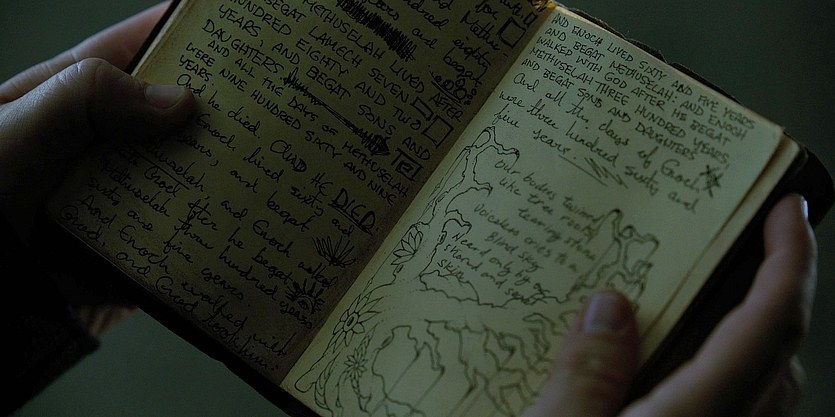 METHUSELAH LIVED
BEGAT LAMECH SEVEN
HUNDRED EIGHTY AND TWO
YEARS, AND BEGAT SONS AND
DAUGHTERS,
AND ALL THE DAYS OF METHUSELAH
WERE NINE HUNDRED SIXTY AND NINE
YEARS
And he died. AND HE DIED
Enoch lived sixty and
years, and begat
Methuselah and Enoch walked
with God after he begat
Methuselah three hundred years
sixty and five years.
And Enoch walked with
God, and God took him.
hundred
and eighty
begat
AFTER
AND ENOCH LIVED SIXTY AND FIVE YEARS
AND BEGAT METHUSELAH: AND ENOCH
WALKED WITH GOD AFTER HE BEGAT
METHUSELAH THREE HUNDRED YEARS,
AND BEGAT SONS AND DAUGHTERS
And all the days of Enoch
were three hundred sixty and
five years.
Our bodies twined
like tree roots
tearing stone
Voiceless cries to a
Blind sky
Heard only by our
shared and
skin